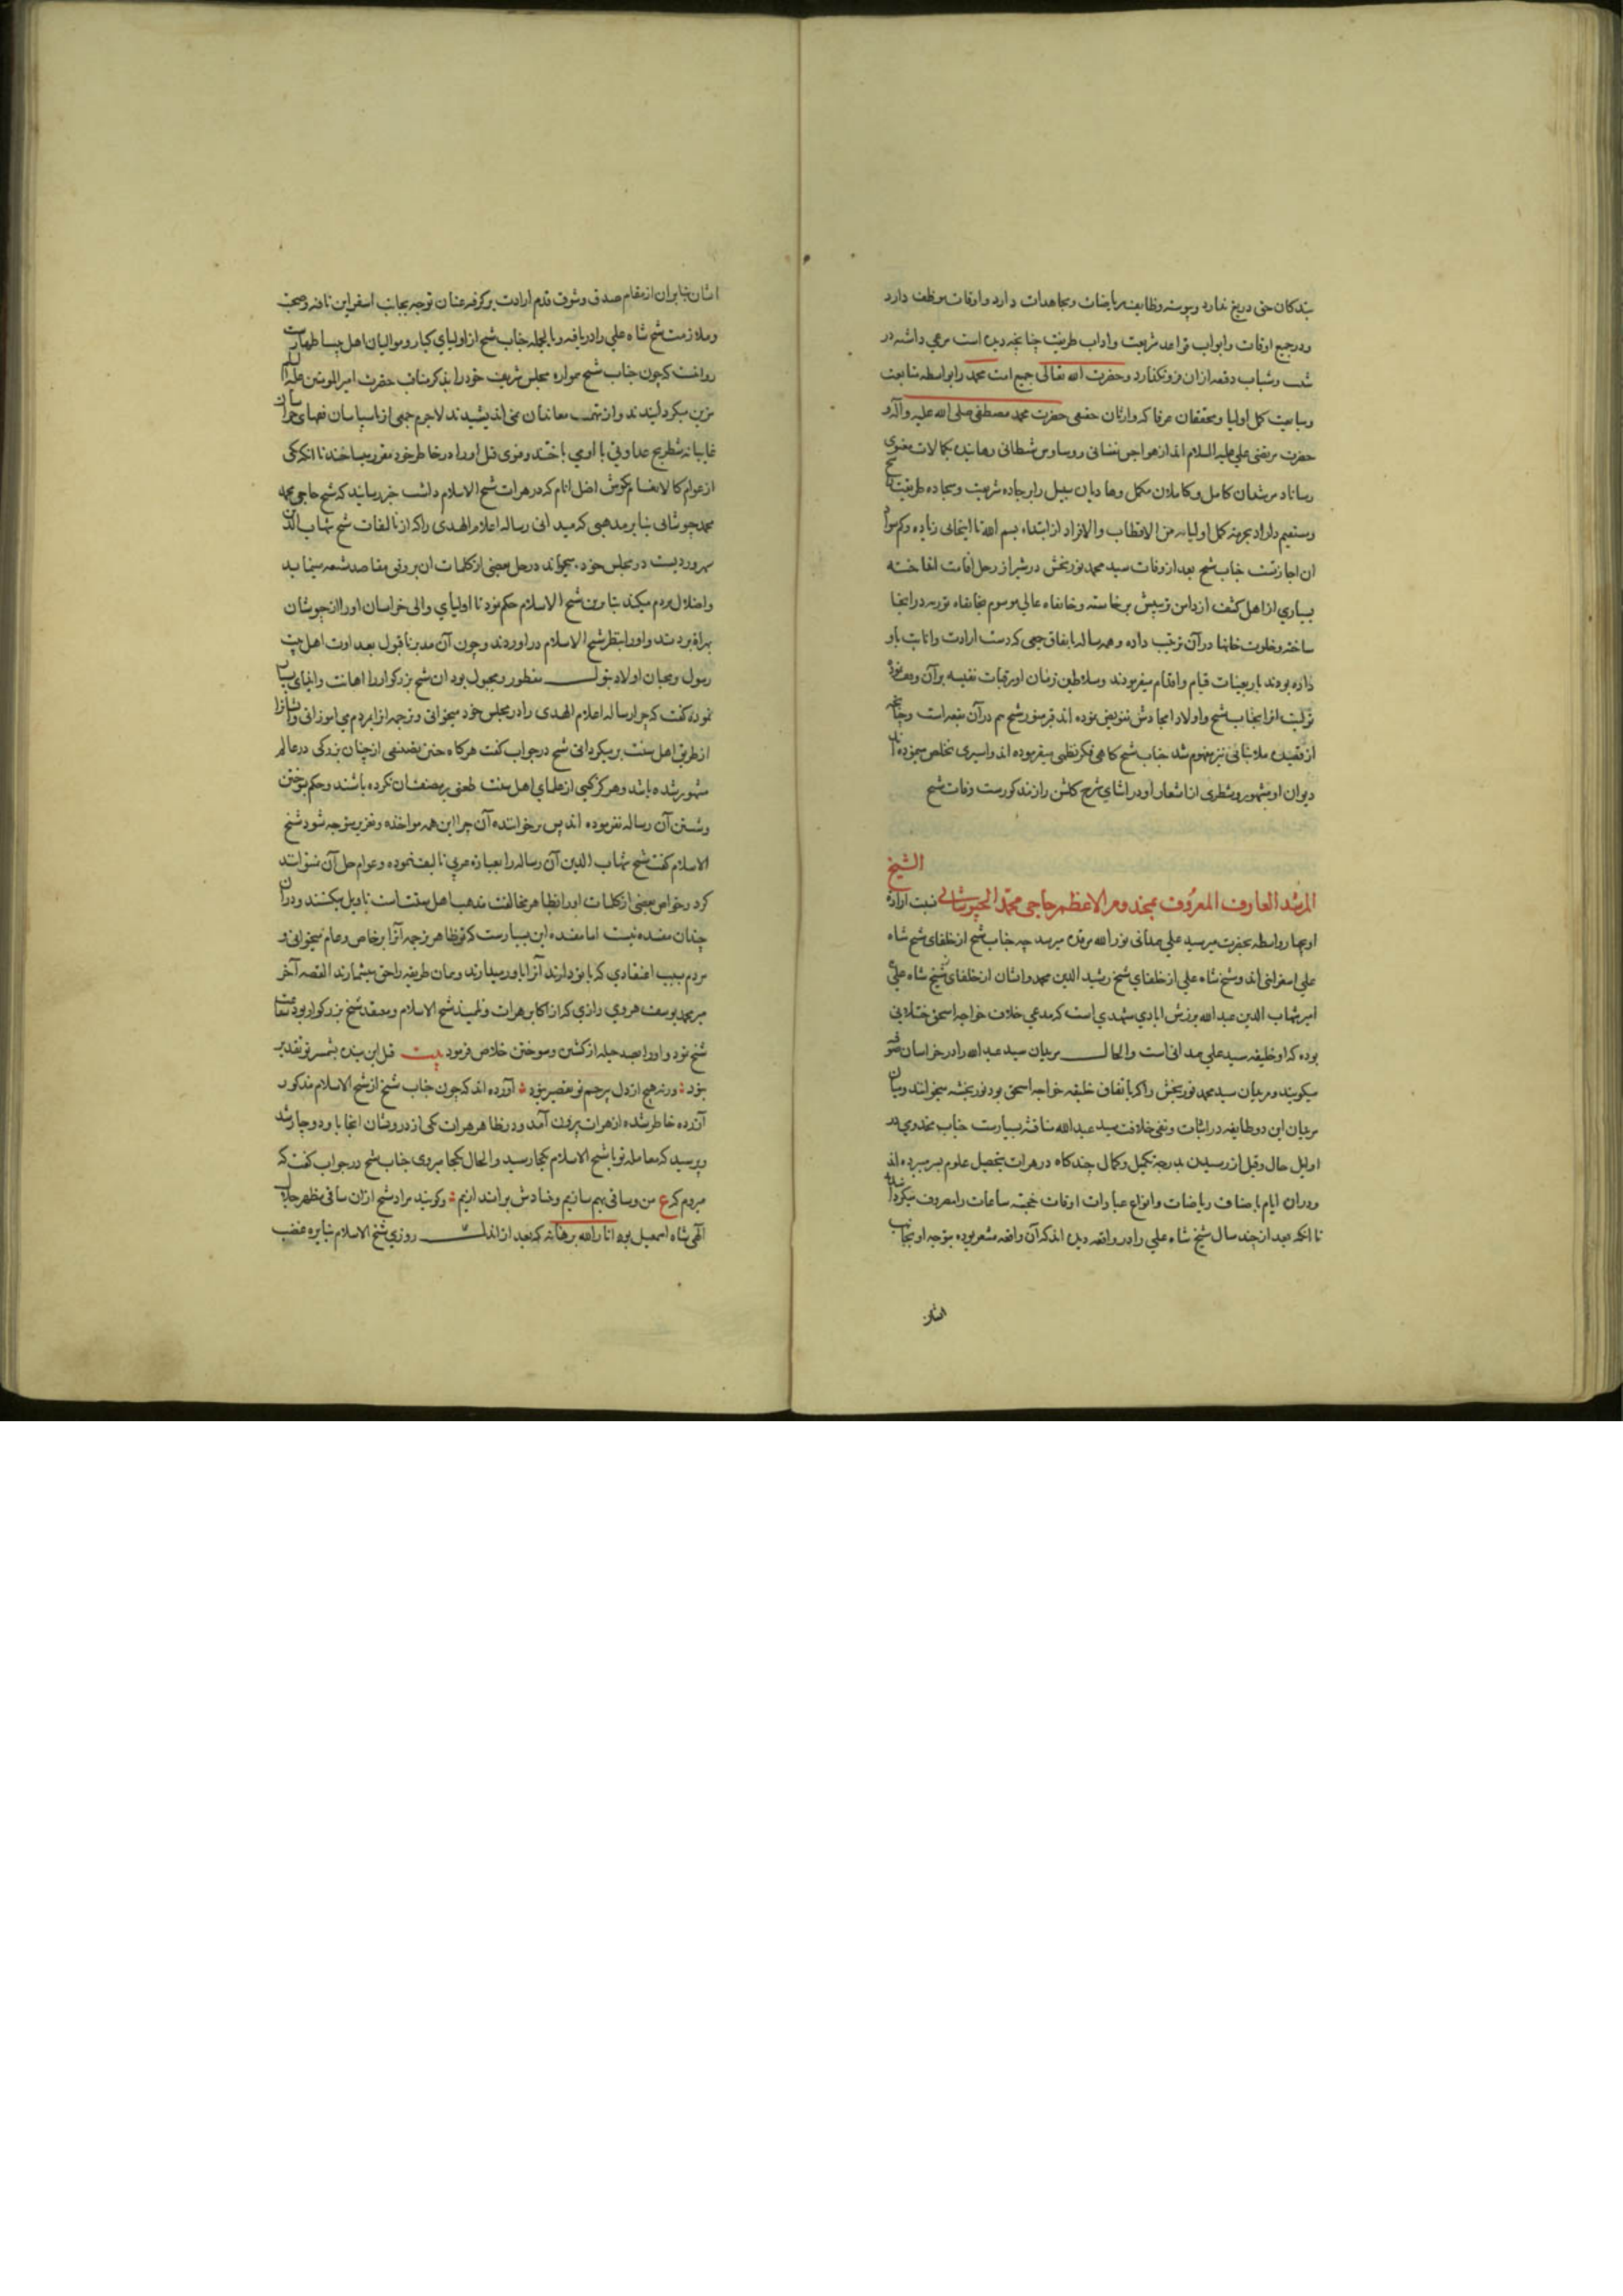 بندگان حق دریغ ندارد و پیوسته وظایف ریاضات و مجاهدات دارد و اوقات موظف دارد
و در جمیع اوقات و ابواب قواعد شریعت و آداب طریقت چنانچه دیده است مرعی داشته در
شیب و شباب دقیقه از آن فرو نگذارد و حضرت الله تعالی جمیع امت محمد را بواسطه متابعت
و مبایعت کمل اولیا و محققان عرفا که وارثان حقیقی حضرت محمد مصطفی صلی الله علیه و آله و
حضرت مرتضی علی علیه السلام اند از هواجس نفسانی و وساوس شیطانی رهانیده بکمالات معنوی
رساناد مرشدان کامل و کاملان مکمل و هادیان سبیل را بر جاده شریعت و سجاده طریقت
و مستقیم داراد بحرمة کمل اولیائه من الاقطاب و الافراد از ابتداء بسم الله تا اینجا
ان اجازتست جناب شیخ بعد از وفات سید محمد نوربخش در شیراز رحل اقامت انداخته
بسیاری از اهل کشف از دامن تربیتش برخاسته و خانقاه عالی موسوم بخانقاه نوریه در آنجا
ساخته و خلوت خانها در آن ترتیب داده و همه ساله باتفاق جمعی که دست ارادت و انابت باو
داده بودند باربعینات قیام و اقدام میفرمودند و سلاطین زمان او رقبات نفیسه بر آن وقف نموده
تولیت انرا بجناب شیخ و اولاد امجادش تفویض نموده اند قبر منور شیخ هم در آن بقعه است و چنانچه
از قصیده ملا بنائی نیز مفهوم شد جناب شیخ گاهی فکر نظمی میفرموده اند و اسیری تخلص مینموده اند
دیوان او مشهور و شطری از اشعار او در اثنای شرح گلشن راز مذکورست وفات شیخ
الشیخ
المرشد العارف المعروف بمخدوم الاعظم حاجی محمد الخبوشانی نسبت اراده
او بچهار واسطه بحضرت میر سید علی همدانی نور الله مرقده میرسد چه جناب شیخ از خلفای شیخ شاه
علی اسفراینی اند و شیخ شاه علی از خلفای شیخ رشید الدین محمد و ایشان از خلفای شیخ شاه علی
امیر شهاب الدین عبدالله برزش ابادی مشهدی است که مدعی خلافت خواجه اسحق ختلانی
بوده که او خلیفه سید علی همدانی است و الحال مریدان سید عبدالله را در خراسان
میگویند و مریدان سید محمد نوربخش را که باتفاق خلیفه خواجه اسحق بود نوربخشیه میخوانند و میان
مریدان این دو طایفه در اثبات و نفی خلافت سید عبدالله مناقشه بسیارست جناب مخدومی در
اوایل حال و قبل از رسیدن بدرجه تکمیل و کمال چندگاه در هرات بتحصیل علوم بسر میبرده اند
و در ان ایام باصناف ریاضات و انواع عبادات اوقات خجسته ساعات را مصروف میکرده اند
تا انکه بعد از چند سال شیخ شاه علی را در واقعه دیده اند که آن واقعه مشعر بوده بتوجه او بجانب
ایشان
ایشان بنابران از مقام صدق و شوق قدم ارادت برگرفته عنان توجه بجانب اسفراین تافته و صحبت
و ملازمت شیخ شاه علی را دریافته و بالجمله جناب شیخ از اولیای کبار و موالیان اهل بیت اطهارست
روایتست که چون جناب شیخ همواره مجلس شریف خود را بذکر مناقب حضرت امیر المومنین علیه السلام
مزین میگردانیدند و از تهمت معاندان نمی اندیشیدند لاجرم جمعی از ناسپاسان
غایبانه شطرنج عداوتی با اوی باختند و فتوی قتل او را در خاطر خود مقرر میساختند تا انکه یکی
از عوام کالانعام بگوش اضل انام که در هرات شیخ الاسلام داشت خبر رسانید که شیخ حاجی محمد
محمد خبوشانی بنا بر مذهبی که میدانی رساله اعلام الهدی را که از تالیفات شیخ شهاب الدین
سهروردیست در مجلس خود میخواند و در حل بعضی از کلمات ان بر وفق مقاصد شیعه مینماید
و اضلال مردم میکند بنا برین شیخ الاسلام حکم نمود تا اولیای والی خراسان او را از خبوشان
بهراة بردند و او را بنظر شیخ الاسلام در اوردند و چون آن مدبر ناقبول بعداوت اهل بیت
رسول و محبان اولاد بتول مفطور و مجبول بود ان شیخ بزرگوار را اهانت و ایذای بسیار
نموده گفت که چرا رساله اعلام الهدی را در مجلس خود میخوانی و ترجمه انرا بمردم می اموزانی و ایشانرا
از طریق اهل سنت بر میگردانی شیخ در جواب گفت هرگاه چنین تصنیفی از چنان بزرگی در عالم
مشهور شده باشد و هرگز کسی از علمای اهل سنت طعنی بر مصنف آن نکرده باشند و حکم بسوختن
و شستن آن رساله نفرموده اند پس بر خواننده آن چرا این همه مواخذه و تعزیر متوجه شود شیخ
الاسلام گفت شیخ شهاب الدین آن رساله را بعبارة عربی تالیف نموده و عوام حل آن نمیتوانند
کرد و خواص بعضی از کلمات او را که بظاهر مخالف مذهب اهل سنتست تاویل میکنند و در ان
چندان مفسده نیست اما مفسده این بسیارست که تو ظاهر ترجمه آنرا بر خاص و عام میخوانی و
مردم بسبب اعتقادی که بتو دارند آنرا باور میدارند و همان طریقه را حق میشمارند القصه آخر
میر محمد یوسف هروی رازی که از اکابر هرات و تلمیذ شیخ الاسلام و معتقد شیخ بزرگوار بود شفاعت
شیخ نمود و او را بصد حیله از کشتن و سوختن خلاص فرمود بیت قتل این بنده بشمشیر تو تقدیر
نبود : ورنه هیچ از دل بیرحم تو تقصیر نبود : آورده اند که چون جناب شیخ از شیخ الاسلام مذکور
آزرده خاطر شده از هرات بیرون آمد و در ظاهر هرات یکی از درویشان انجا باو دوچار شد
و پرسید که معامله تو با شیخ الاسلام بکجا رسید و الحال بکجا میروی جناب شیخ در جواب گفت که
میروم که ع من و ساقی بهم سازیم و بنیادش براندازیم : و گویند مراد شیخ ازان ساقی مظهر جلال
الهی شاه اسمعیل بود انار الله برهانه که بعد از اندک روزی شیخ الاسلام بنایره غضب